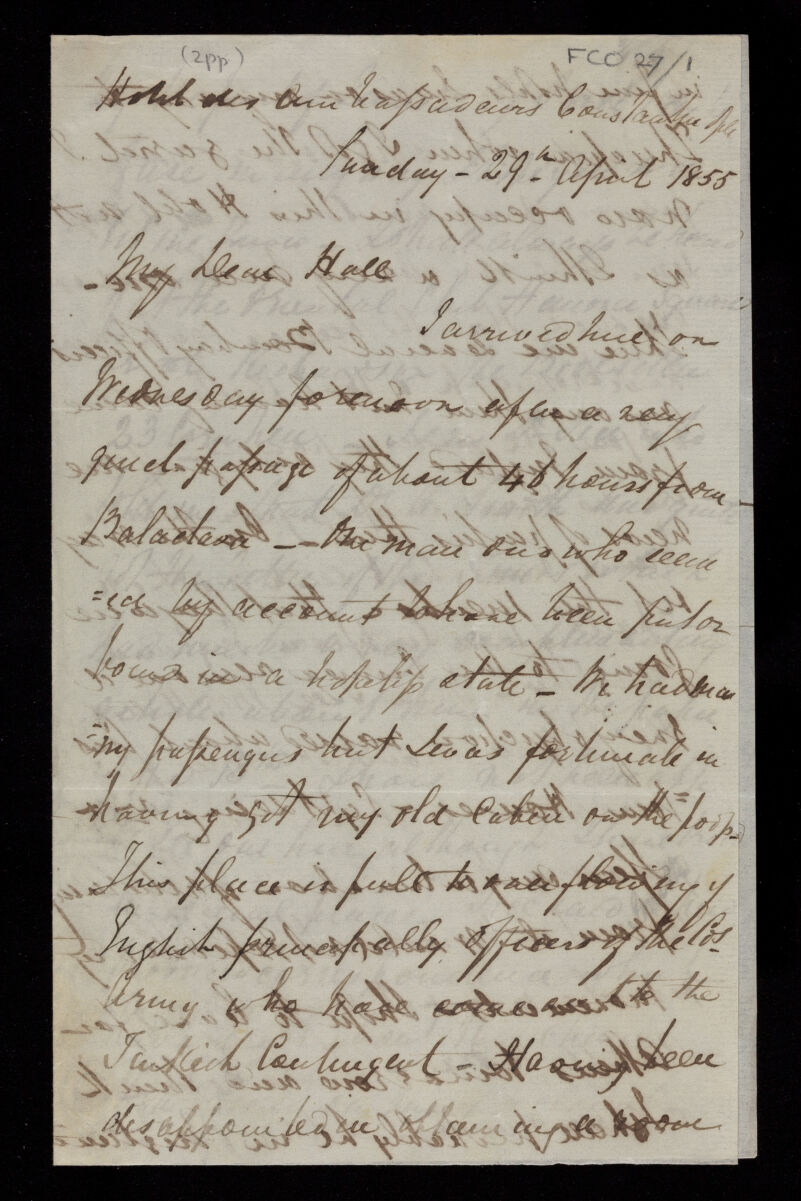 (2pp)
FCO 27/1
Hotel des Ambassadeurs Constantinople
Sunday - 29th April 1855
My Dear Hall -
I arrived here on
Wednesday forenoon after a very
good passage of about 40 hours from -
Balaclava - - the man
=ed by account to have been put on
board in a hopeless state - We had man
=ny passengers but I was fortunate in
having got my old Cabin on the poop -
This place is full to overflowing of
English principally Officers of the Cos-
Army who have come out to the
Turkish Contingent - Having been
disappointed in obtaining a room